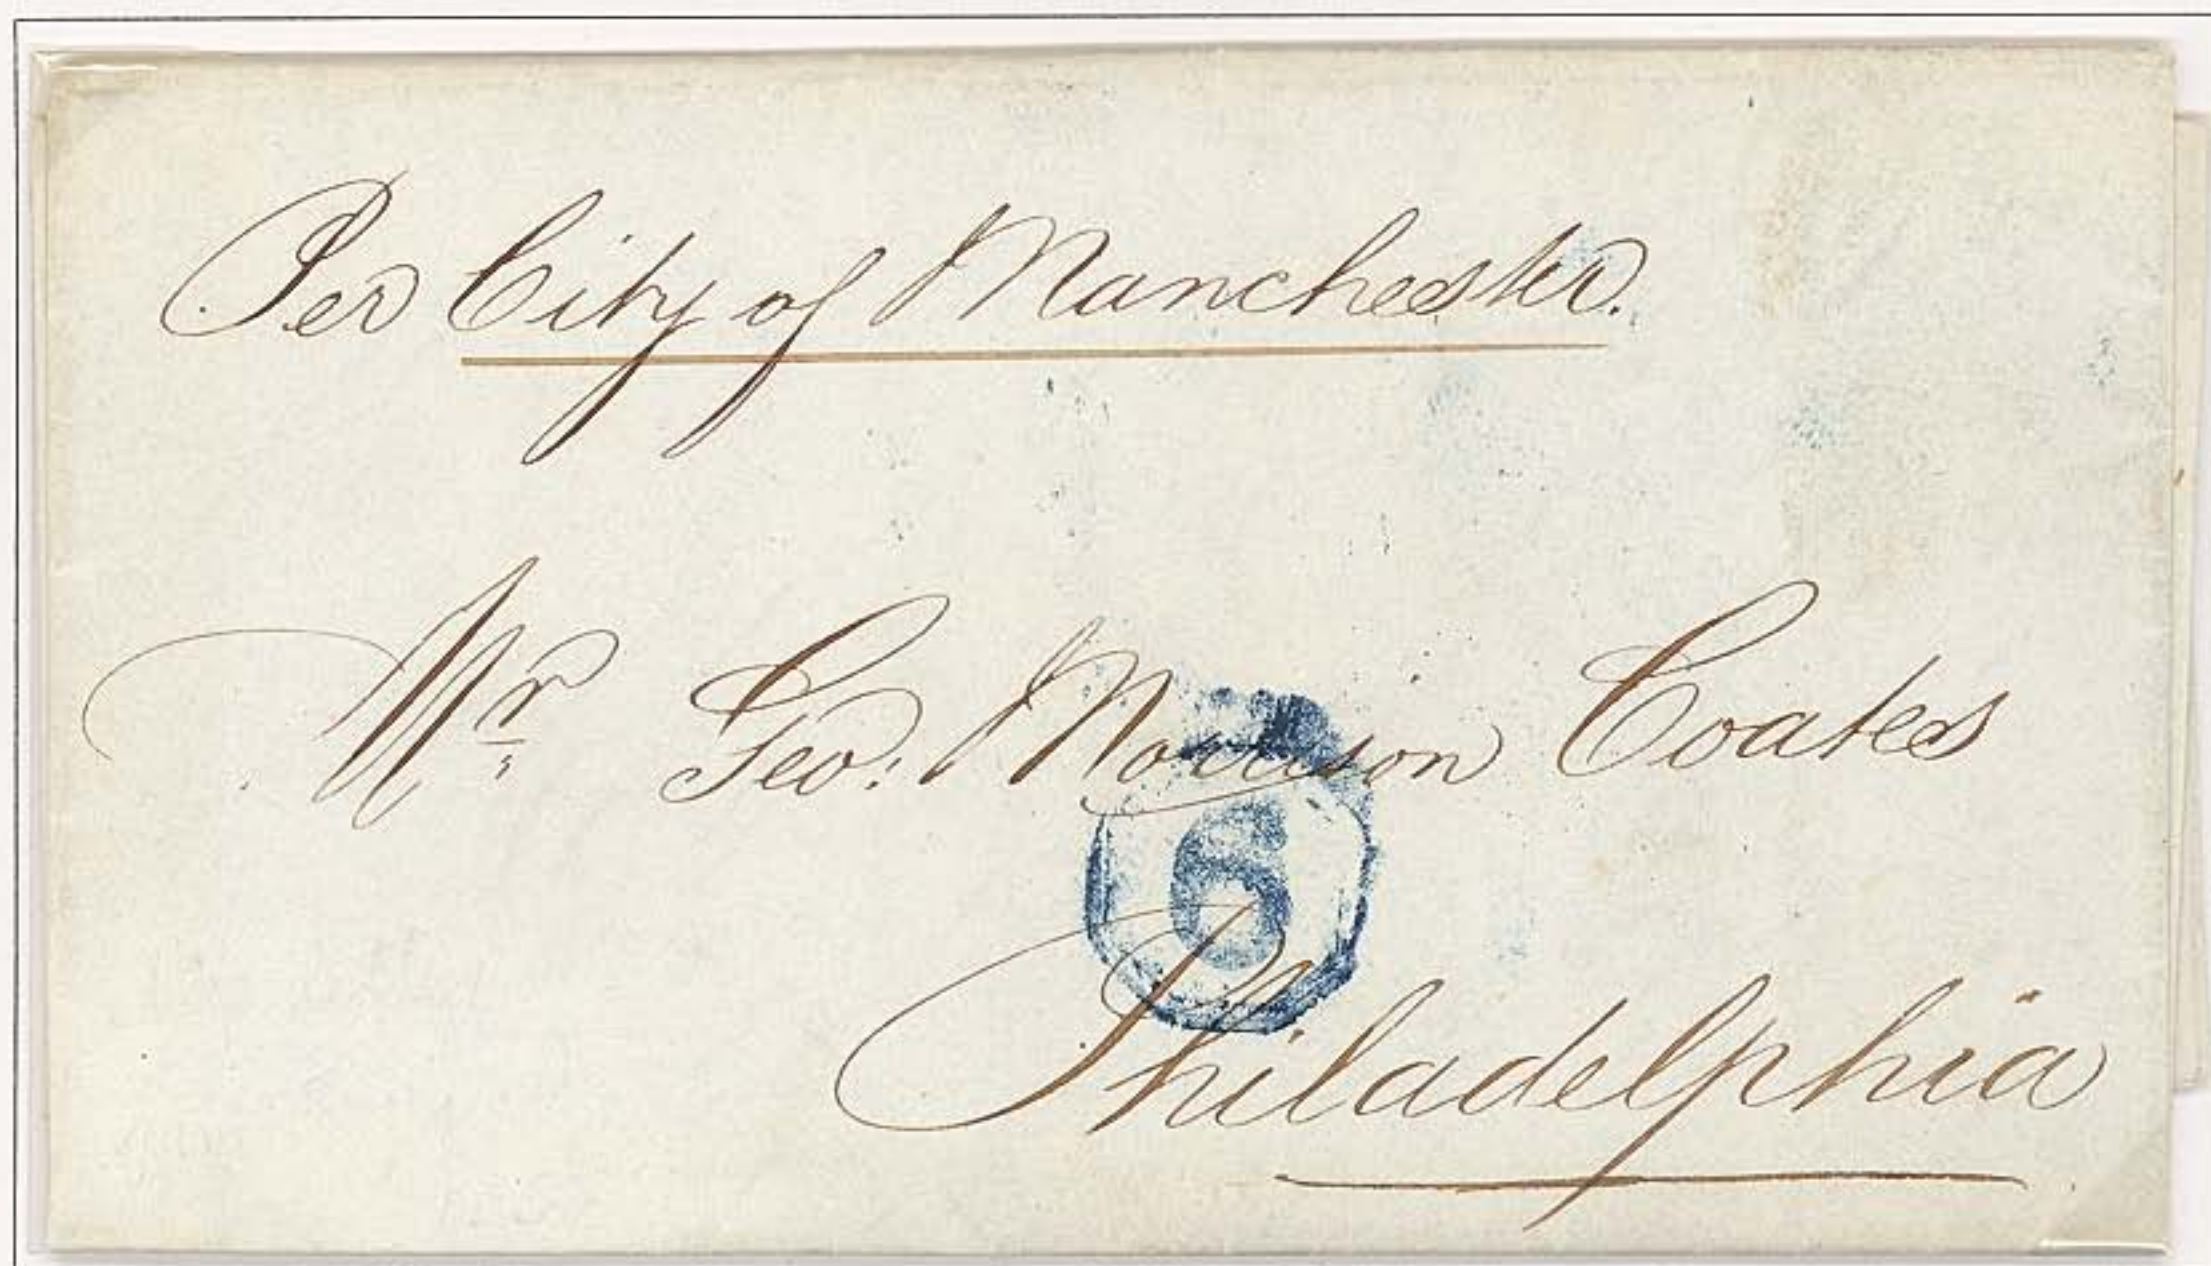 Per City of Manchester.
Mr Geo: Morrison Coates
6
Philadelphia